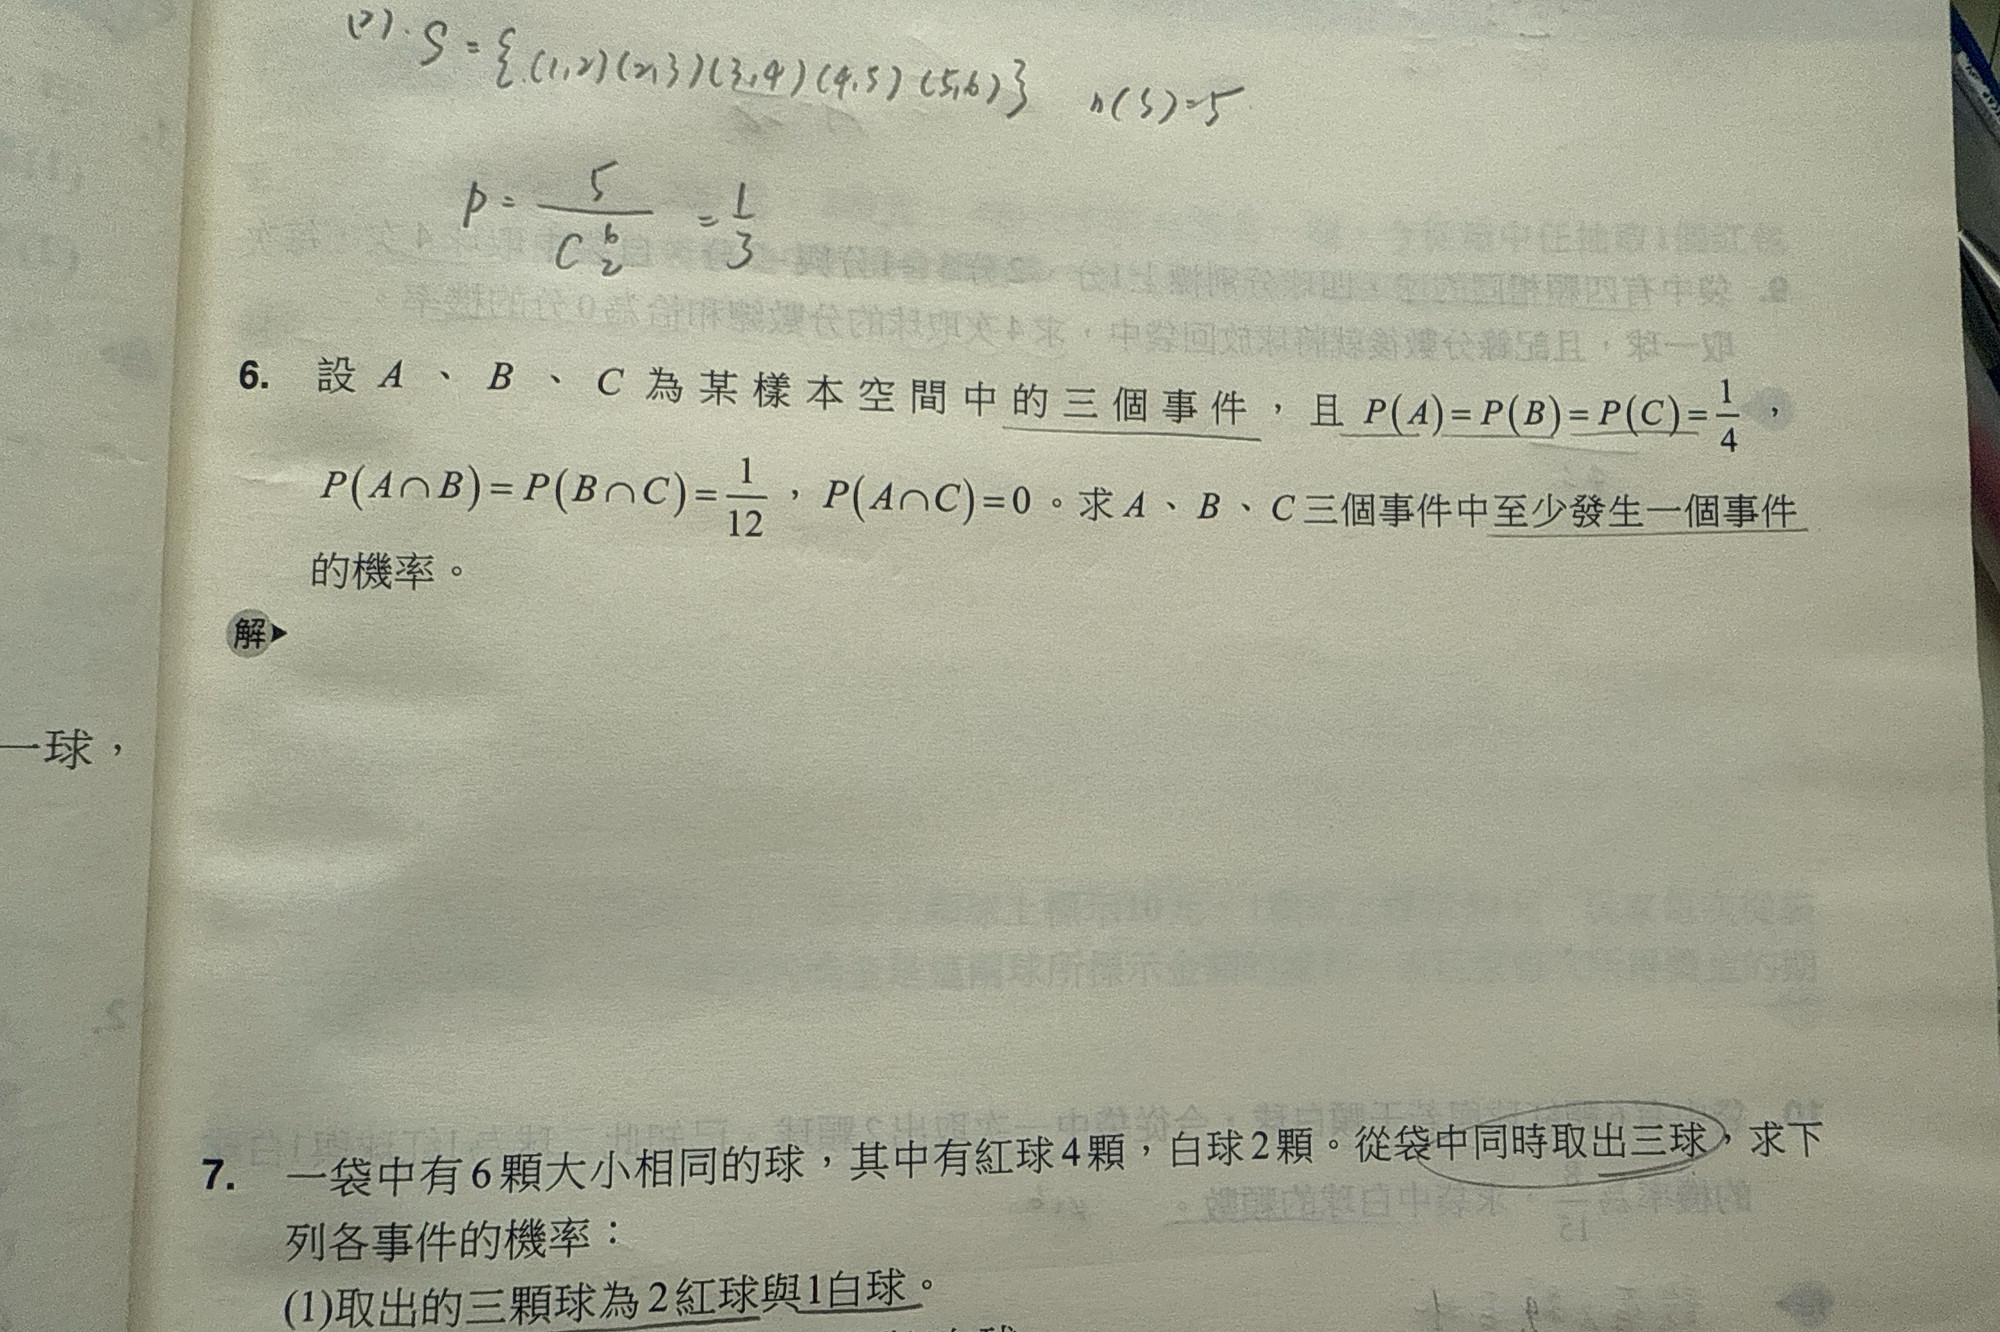 (2). S = {(1,2)(2,3)(3,4)(4,5)(5,6)} n(S)=5
P = 5/C⁶₂ = 1/3
6. 設 A、B、C 為某樣本空間中的三個事件，且 P(A)=P(B)=P(C)=1/4，
P(A∩B)=P(B∩C)=1/12，P(A∩C)=0。求 A、B、C 三個事件中至少發生一個事件
的機率。
解
一球，
7. 一袋中有6顆大小相同的球，其中有紅球4顆，白球2顆。從袋中同時取出三球，求下
列各事件的機率：
(1)取出的三顆球為2紅球與1白球。